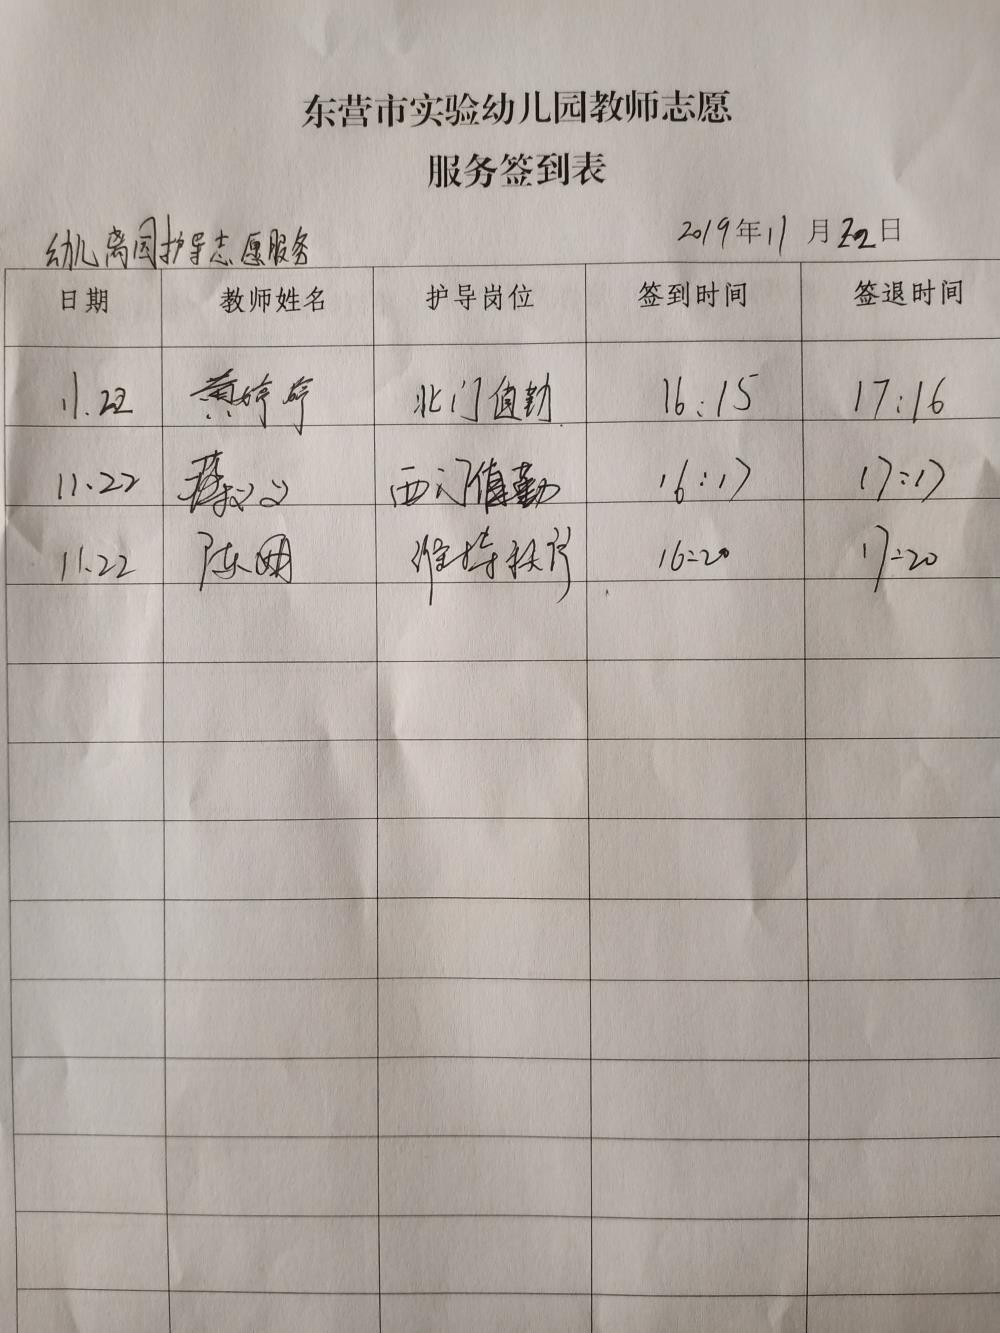 东营市实验幼儿园教师志愿
服务签到表
幼儿离园护导志愿服务 2019年11月22日
日期 教师姓名 护导岗位 签到时间 签退时间
11.22 黄婷婷 北门值勤 16:15 17:16
11.22 西门值勤 16:17 17:17
11.22 陈 维持秩序 16:20 17:20